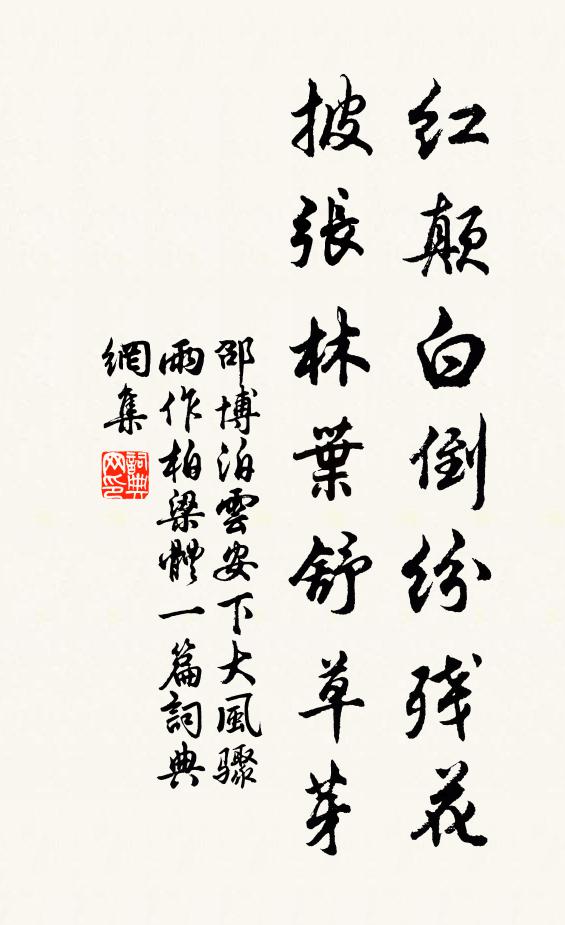 红顛白倒纷残花
披張林葉舒草芽
邵博泊雲安下大風骤
雨作柏梁體一篇詞典
網集
詞典
网印